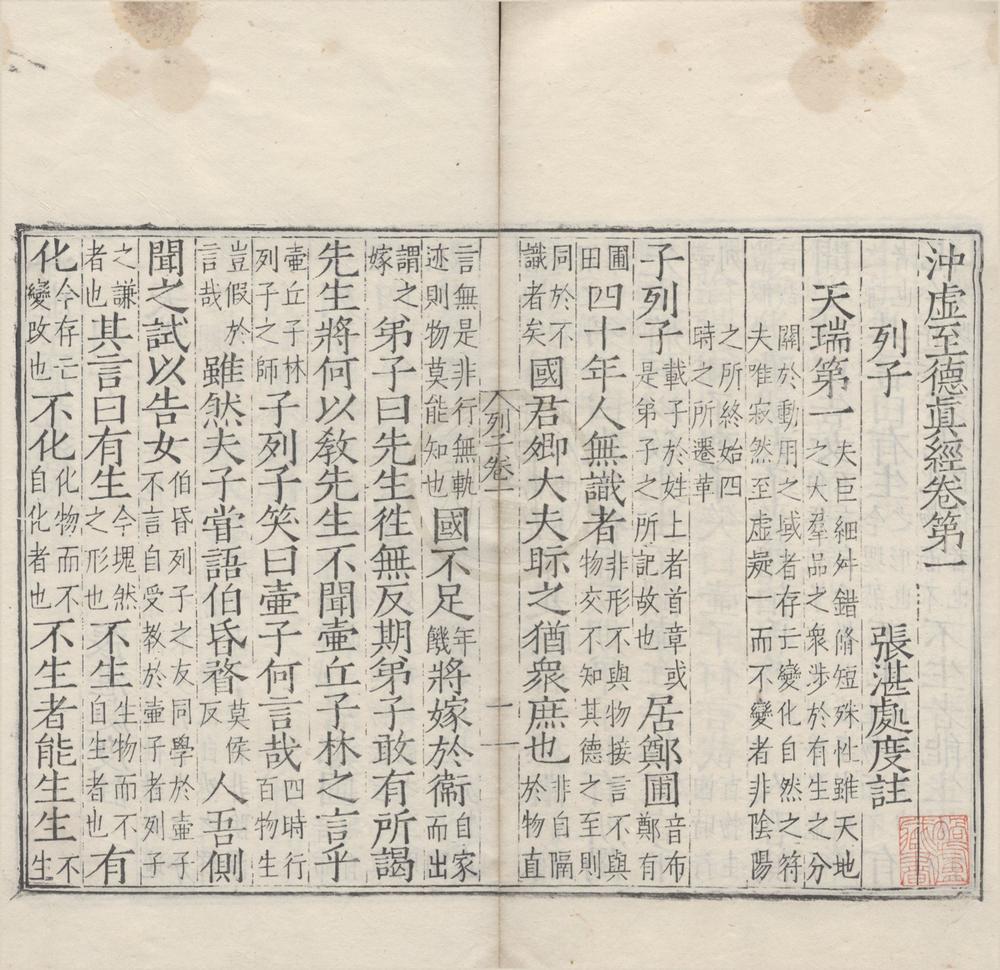 沖虛至德眞經卷第一
列子 張湛處度註
天瑞第一 夫巨細舛錯脩短殊性雖天地之大羣品之衆涉於有生之分
關於動用之域者存亡變化自然之符夫唯寂然至虛凝一而不變者非陰陽
之所終始四時之所遷革
子列子 載子於姓上者首章或是弟子之所記故也 居鄭圃 音布鄭有
圃田 四十年人無識者 非形不與物接言不與物交不知其德之至則
同於不識者矣 國君卿大夫眎之猶衆庶也 非自隔於物直
列子卷一 一
言無是非行無軌迹則物莫能知也 國不足 年饑 將嫁於衛 自家而出
謂之嫁 弟子曰先生徃無反期弟子敢有所謁
先生將何以敎先生不聞壷丘子林之言乎
壷丘子林列子之師 子列子笑曰壷子何言哉 四時行百物生
豈假於言哉 雖然夫子甞語伯昏瞀 莫侯反 人吾側
聞之試以告女 伯昏列子之友同學於壷子不言自受教於壷子者列子
之謙者也 其言曰有生 今塊然之形也 不生 生物而不自生者也 有
化 今存亡變改也 不化 化物而不自化者也 不生者能生生 不生